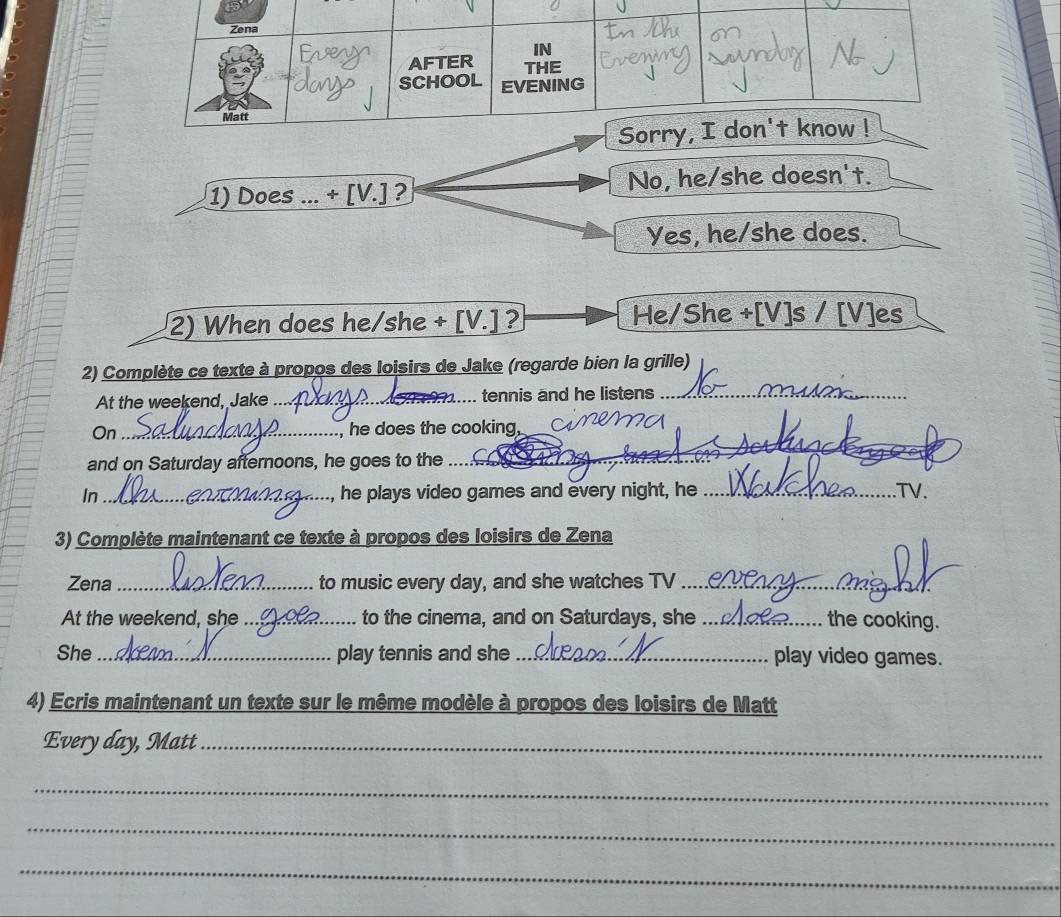 Zena
Every days AFTER SCHOOL IN THE EVENING In the Evening on sunday No
Matt
Sorry, I don't know !
1) Does ... + [V.] ?
No, he/she doesn't.
Yes, he/she does.
2) When does he/she + [V.] ?
He/She +[V]s / [V]es
2) Complète ce texte à propos des loisirs de Jake (regarde bien la grille)
At the weekend, Jake plays tennis and he listens to
On Saturdays, he does the cooking, cinema
and on Saturday afternoons, he goes to the
In the evening, he plays video games and every night, he Watches TV.
3) Complète maintenant ce texte à propos des loisirs de Zena
Zena listen to music every day, and she watches TV every night.
At the weekend, she goes to the cinema, and on Saturdays, she does the cooking.
She play tennis and she play video games.
4) Ecris maintenant un texte sur le même modèle à propos des loisirs de Matt
Every day, Matt